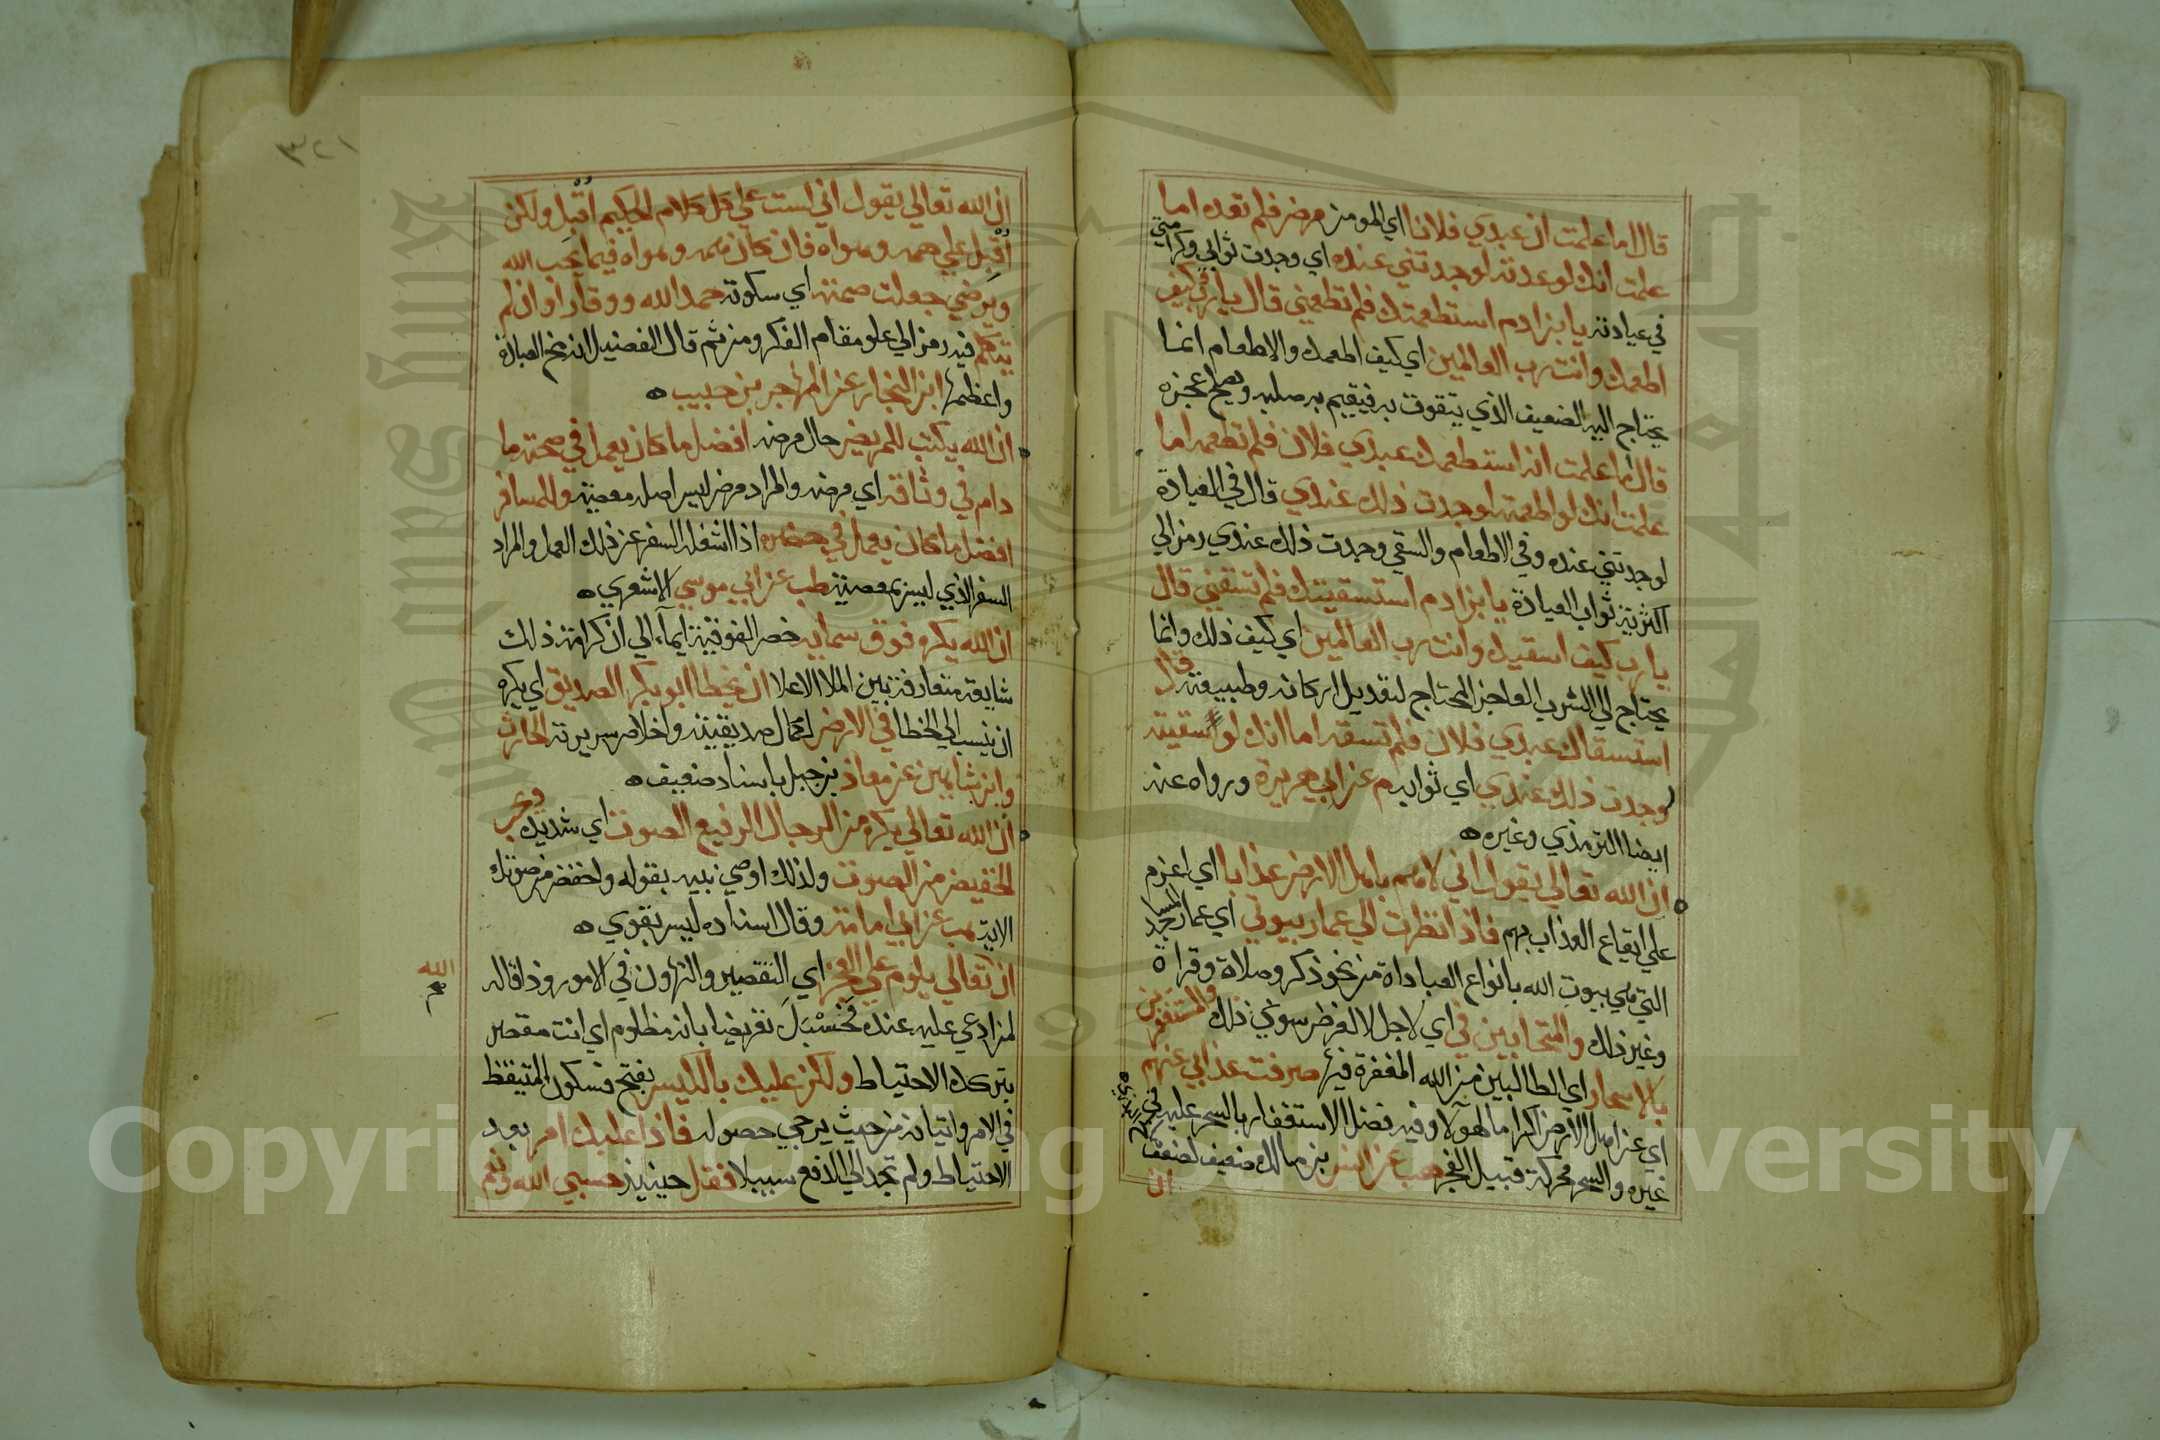 قال اما علمت ان عبدي فلانا اي المومن مرض فلم تعده اما
علمت انك لو عدته لوجدتني عنده اي وجدت ثوابي وكرامتي
في عيادته يا بن ادم استطعمتك فلم تطعمني قال يا رب كيف
اطعمك وانت رب العالمين اي كيف اطعمك والاطعام انما
يحتاج اليه الضعيف الذي يتقوت به فيقيم به صلبه ويصلح عجزه
قال اما علمت انه استطعمك عبدي فلان فلم تطعمه اما
علمت انك لو اطعمته لوجدت ذلك عندي قال في العيادة
لوجدتني عنده وفي الاطعام والسقي وجدت ذلك عندي رمز الي
اكثرية ثواب العيادة يا بن ادم استسقيتك فلم تسقني قال
يا رب كيف اسقيك وانت رب العالمين اي كيف ذلك وانما
يحتاج الي الشرب العاجز المحتاج لتعديل اركانه وطبيعته قال
استسقاك عبدي فلان فلم تسقه اما انك لو سقيته
لوجدت ذلك عندي اي ثوابه م عن ابي هريرة ورواه عنه
ايضا الترمذي وغيره ه
ان الله تعالي يقول اني لاهم باهل الارض عذابا اي اعزم
علي ايقاع العذاب بهم فاذا نظرت الي عمار بيوتي اي عمار المساجد
التي هي بيوت الله بانواع العباداة من نحو ذكر وصلاة وقراة
وغير ذلك والمتحابين في اي لاجل لا لغرض سوي ذلك والمستغفرين
بالاسحار اي الطالبين من الله المغفرة فيها صرفت عذابي عنهم
اي عن اهل الارض اكراما لهولاء وفيه فضل الاستغفار بالسحر عليه في
غيره والسحر محركة قبيل الفجر هب عن انس بن مالك ضعيف لضعف
ان
٣٢١
ان الله تعالي يقول اني لست علي كل كلام الحكيم اقبل ولكن
اقبل علي همه وهواه فان كان همه وهواه فيما يحب الله
ويرضي جعلت صمته اي سكوته حمدا لله ووقارا وان لم
يتكلم فيه رمز الي علو مقام الفكر ومن ثم قال الفضيل انه مخ العبادة
واعظمها ابن النجار عن المهاجر بن حبيب ه
ان الله يكتب للمريض حال مرضه افضل ما كان يعمل في صحته ما
دام في وثاقه اي مرضه والمراد مرض ليس اصله معصية وللمسافر
افضل ما كان يعمل في حضره اذا شغله السفر عن ذلك العمل والمراد
السفر الذي ليس بمعصية طب عن ابي موسي الاشعري ه
ان الله يكره فوق سمايه خص الفوقية ايماء الي ان كراهة ذلك
شايعة متعارفة بين الملا الاعلا ان يخطا ابو بكر الصديق اي يكره
ان ينسب الي الخطا في الارض لكمال صديقيته واخلاص سريرته الحارث
وابن شاهين عن معاذ بن جبل باسناد ضعيف ه
ان الله تعالي يكره من الرجال الرفيع الصوت اي شديده ويحب
الخفيض من الصوت ولذلك اوصي نبيه بقوله واخفض من صوتك
الاية هب عن ابي امامة وقال اسناده ليس بقوي ه
ان تعالي يلوم علي العجز اي التقصير والتهاون في الامور وذا قاله
الله
صح
لمن ادعي عليه عنده فحسبل تعريضا بانه مظلوم اي انت مقصر
بتركك الاحتياط ولكن عليك بالكيس بفتح فسكون التيقظ
في الامر واتيانه من حيث يرجي حصوله فاذا غلبك امر بعد
الاحتياط ولم تجد الي الدفع سبيلا فقل حينيذ حسبي الله ونعم
Copyright © King Saud University